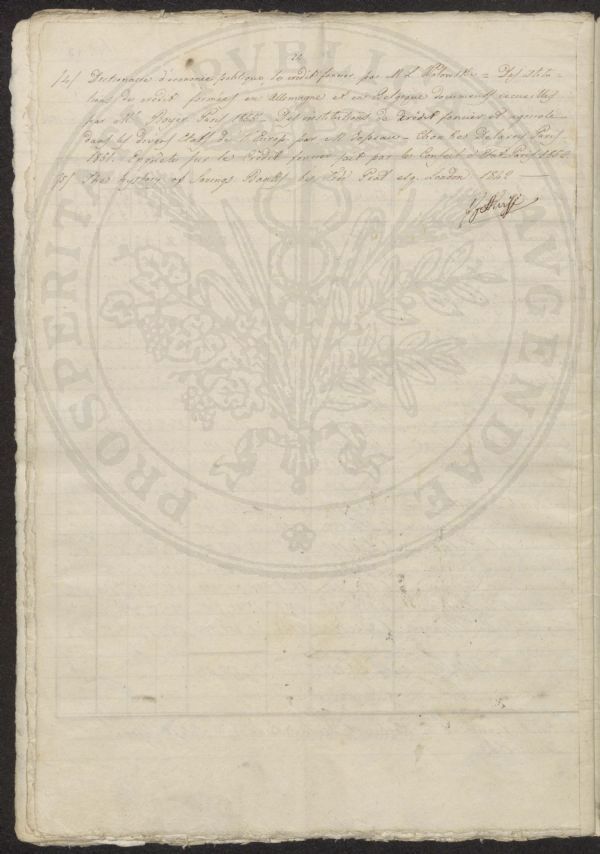 (4) Dictionnaire d'économie publique, de crédit foncier par M. L. Wolowski = Des institu-
tions de crédit foncier en Allemagne et en Belgique documents recueillies
par Mr Royer Paris 1845 - Des institutions de Crédit foncier et agricole
dans les divers Etats de l'Europe par M. Josseau - Chonskes Delaroy Paris
1851. Enquête sur le crédit foncier fait par le Conseil d'Etat Paris 1850.
(5) The history of Savings Banks by Prat esq. London 1842 —
PROSPERITA PUBLI AUGENDAE